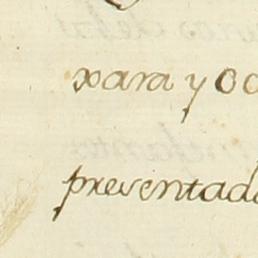 xara y oc
presentada